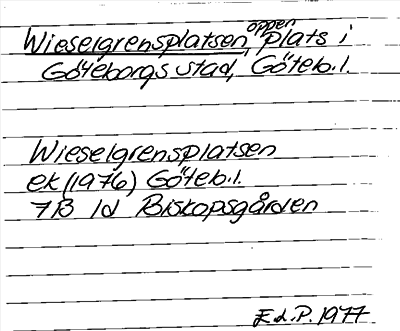 Wieselgrensplatsen, öppen plats i
Göteborgs stad, Göteb.l.
Wieselgrensplatsen
ek (1976) Göteb.l.
7B 1d Biskopsgården
E.d.P. 1977